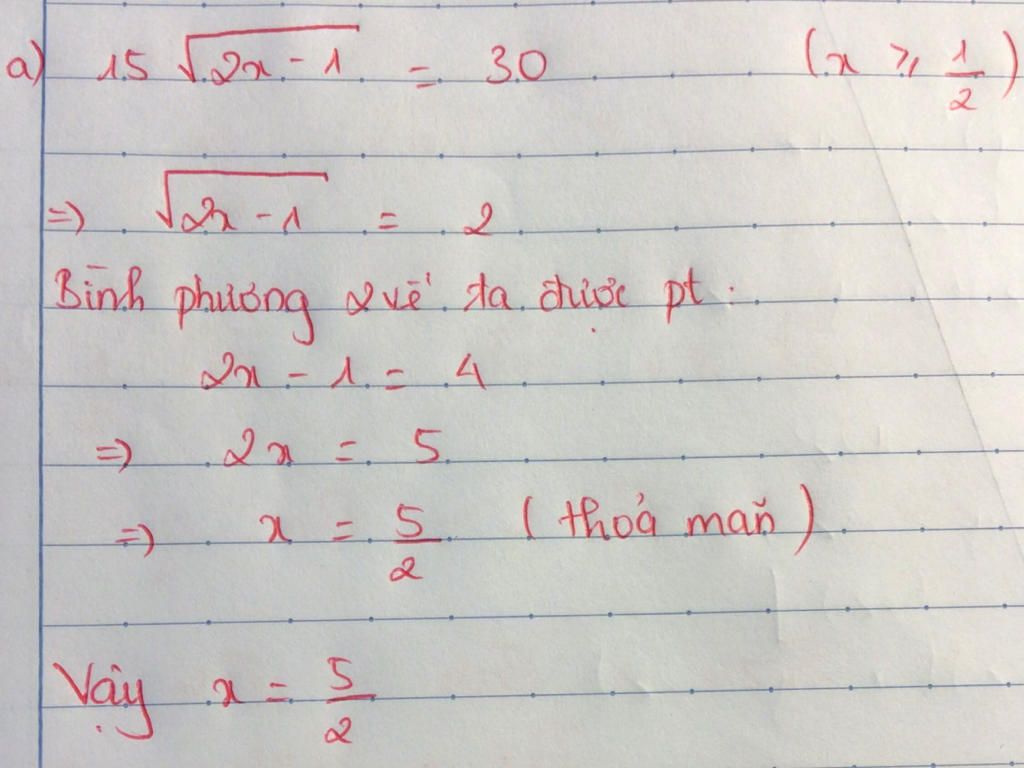 a) 15 √(2x - 1) = 30 (x ⩾ 1/2)
=> √(2x - 1) = 2
Bình phương 2 vế ta được pt :
2x - 1 = 4
=> 2x = 5
=> x = 5/2 (thoả mãn)
Vậy x = 5/2